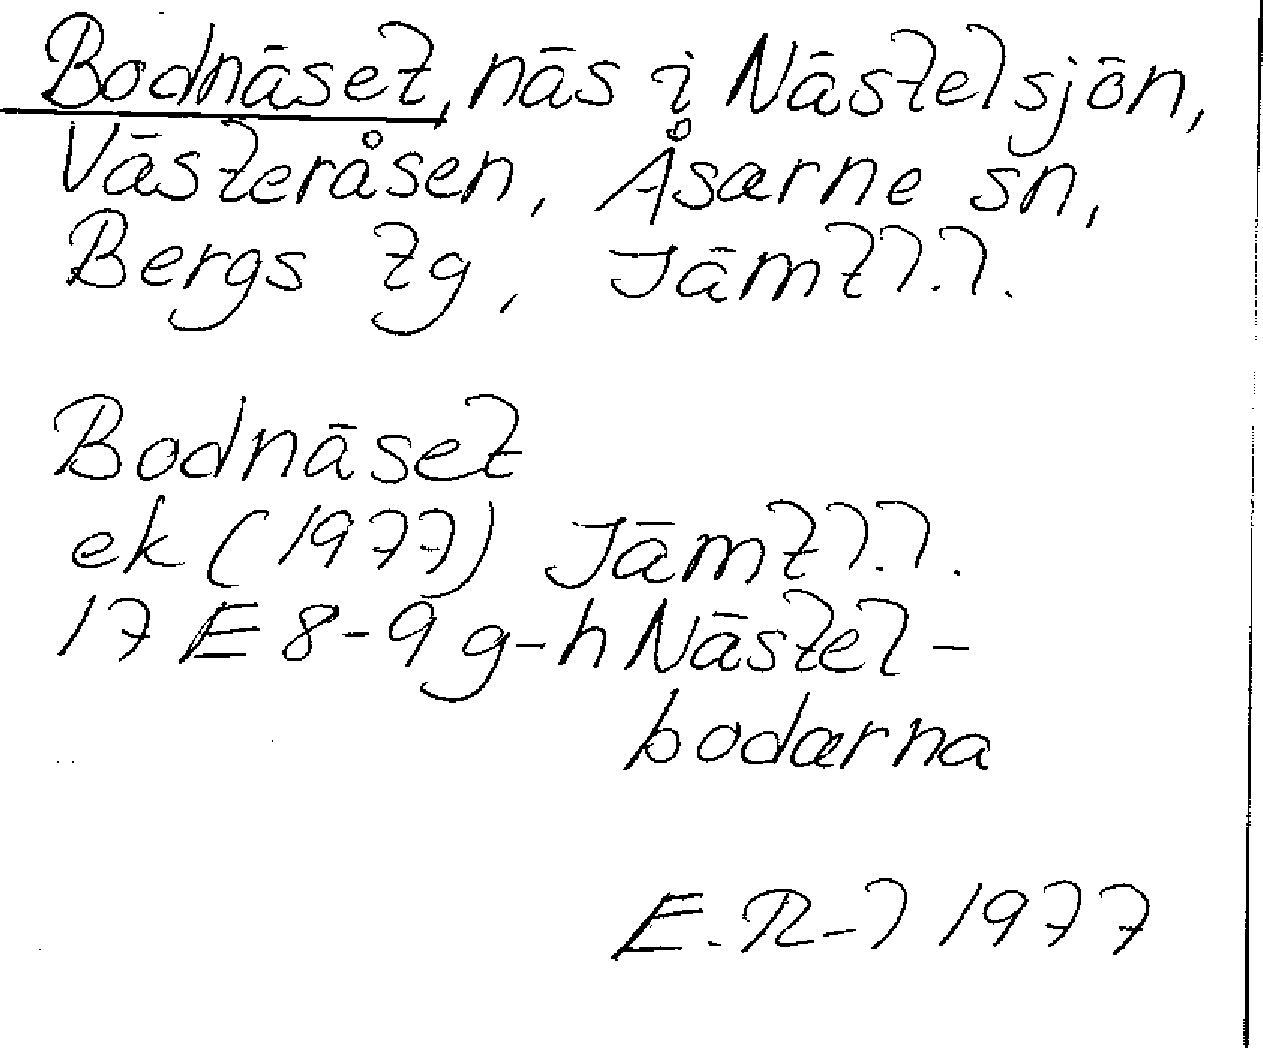 Bodnäset, näs i Nästelsjön,
Västeråsen, Åsarne sn,
Bergs tg, Jämtl.l.
Bodnäset
ek (1977) Jämtl.l.
17 E 8-9 g-h Nästel-
bodarna
E.R-l 1977